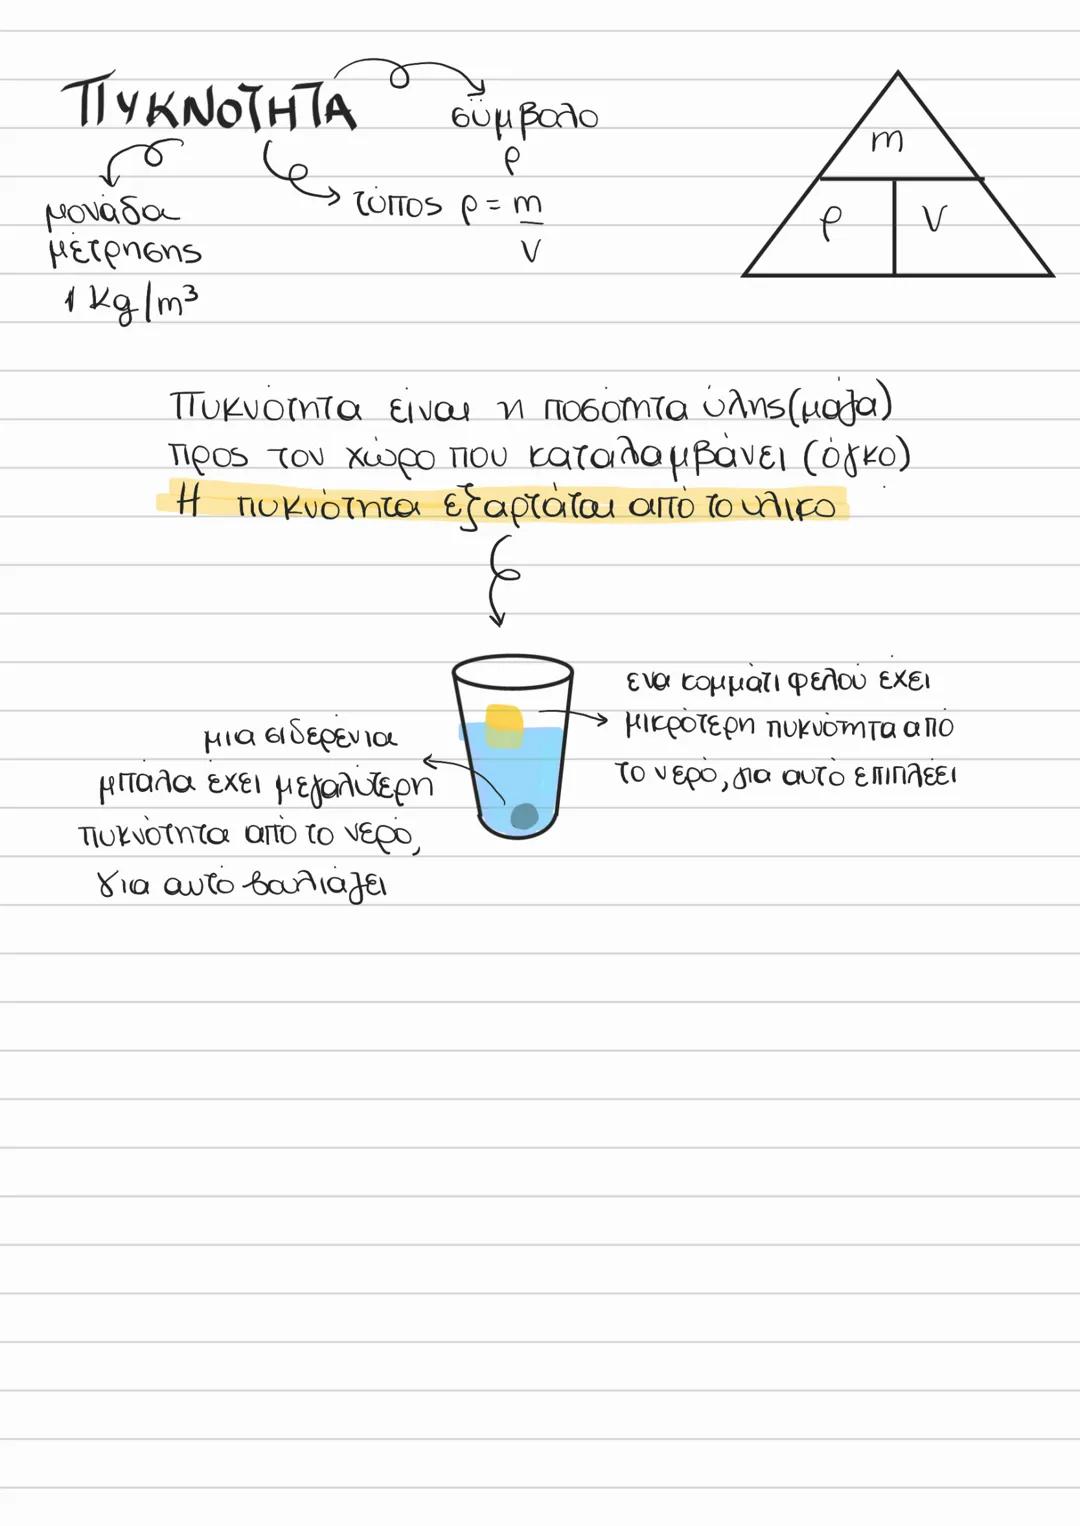 ΠΥΚΝΟΤΗΤΑ
σύμβολο
ρ
μονάδα
μέτρησης
1 Kg/m³
τύπος ρ = m
V
m
ρ V
Πυκνότητα είναι η ποσότητα ύλης (μάζα)
προς τον χώρο που καταλαμβάνει (όγκο)
Η πυκνότητα εξαρτάται από το υλικο
ενα κομμάτι φελού έχει
μικρότερη πυκνότητα από
το νερό, για αυτό επιπλέει
μια σιδερένια
μπάλα έχει μεγαλύτερη
πυκνότητα από το νερό,
για αυτό βουλιάζει